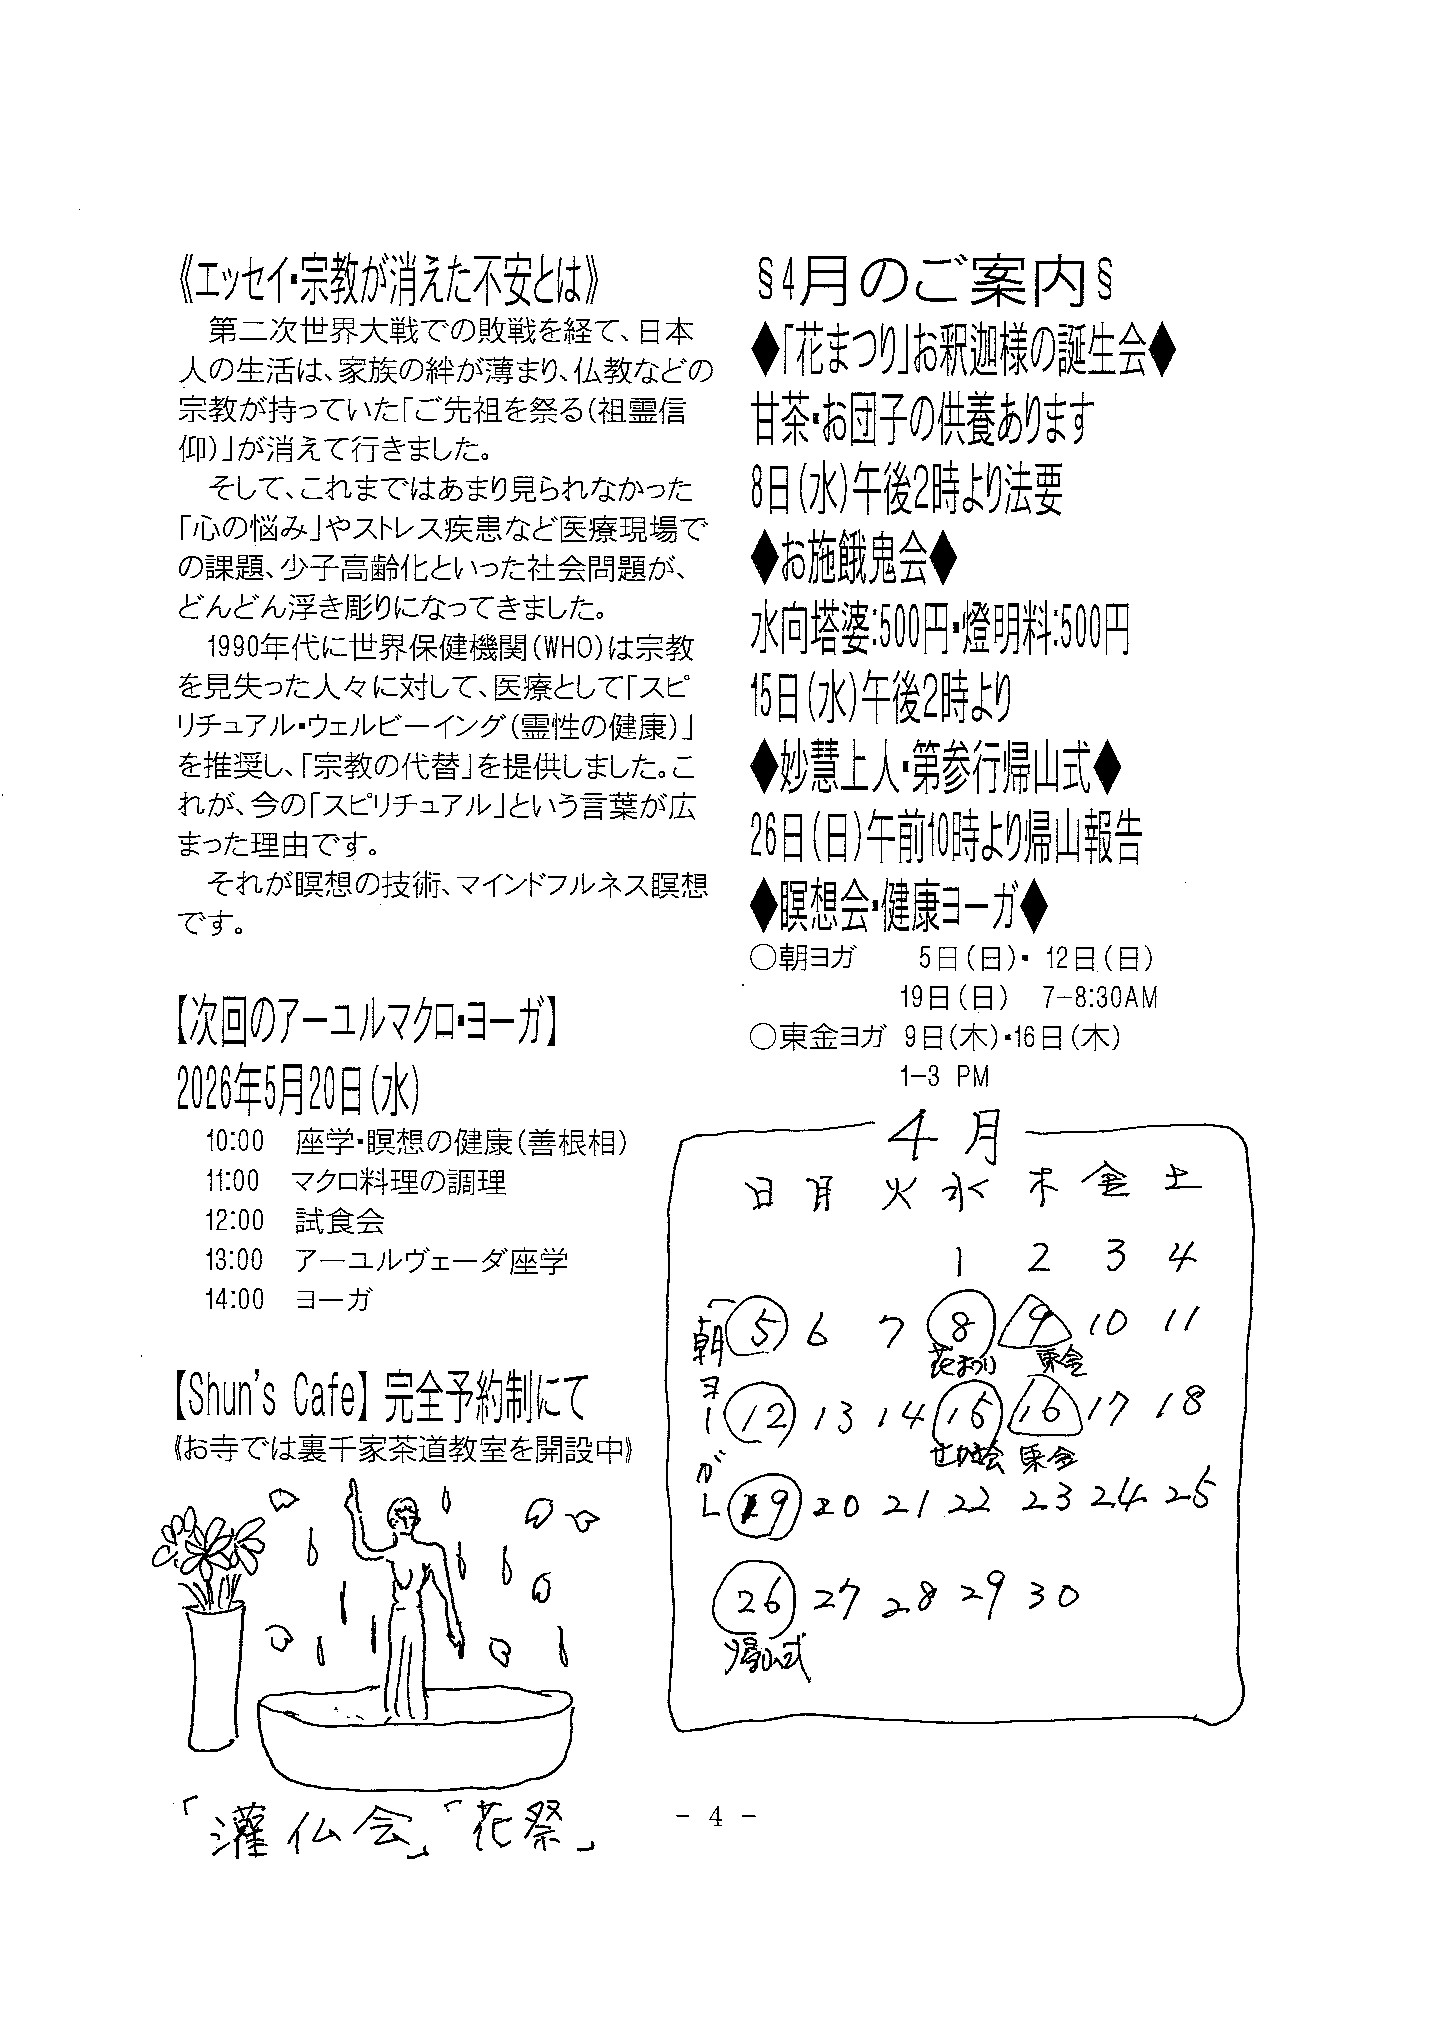 《エッセイ・宗教が消えた不安とは》
　第二次世界大戦での敗戦を経て、日本
人の生活は、家族の絆が薄まり、仏教などの
宗教が持っていた「ご先祖を祭る(祖霊信
仰)」が消えて行きました。
　そして、これまではあまり見られなかった
「心の悩み」やストレス疾患など医療現場で
の課題、少子高齢化といった社会問題が、
どんどん浮き彫りになってきました。
　1990年代に世界保健機関(WHO)は宗教
を見失った人々に対して、医療として「スピ
リチュアル・ウェルビーイング(霊性の健康)」
を推奨し、「宗教の代替」を提供しました。こ
れが、今の「スピリチュアル」という言葉が広
まった理由です。
　それが瞑想の技術、マインドフルネス瞑想
です。
【次回のアーユルマクロ・ヨーガ】
2026年5月20日(水)
10:00　座学・瞑想の健康(善根相)
11:00　マクロ料理の調理
12:00　試食会
13:00　アーユルヴェーダ座学
14:00　ヨーガ
【Shun's Cafe】完全予約制にて
《お寺では裏千家茶道教室を開設中》
「灌仏会」「花祭」
§4月のご案内§
◆「花まつり」お釈迦様の誕生会◆
甘茶・お団子の供養あります
8日(水)午後2時より法要
◆お施餓鬼会◆
水向塔婆:500円・燈明料:500円
15日(水)午後2時より
◆妙慧上人・第参行帰山式◆
26日(日)午前10時より帰山報告
◆瞑想会・健康ヨーガ◆
○朝ヨガ　5日(日)・12日(日)
19日(日)　7-8:30AM
○東金ヨガ　9日(木)・16日(木)
1-3 PM
4月
日 月 火 水 木 金 土
1 2 3 4
「朝ヨーガ」
5 6 7 8 9 10 11
花まつり 東金
12 13 14 15 16 17 18
せがき会 東金
19 20 21 22 23 24 25
26 27 28 29 30
帰山式
- 4 -